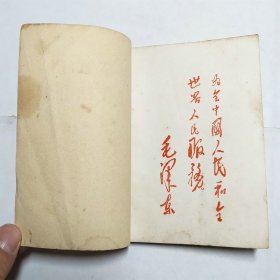 为全中國人民和全
世界人民服務
毛澤东